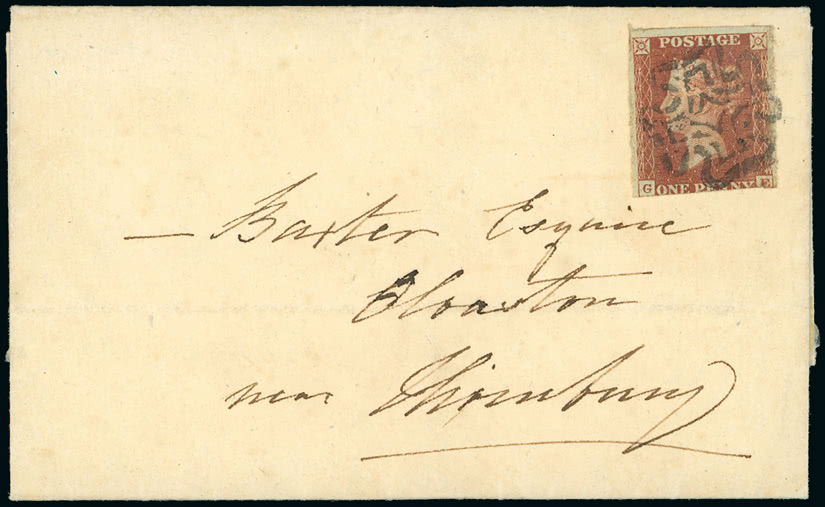 POSTAGE
G ONE PENNY E
— Baxter Esquire
Olvaston
near Thornbury